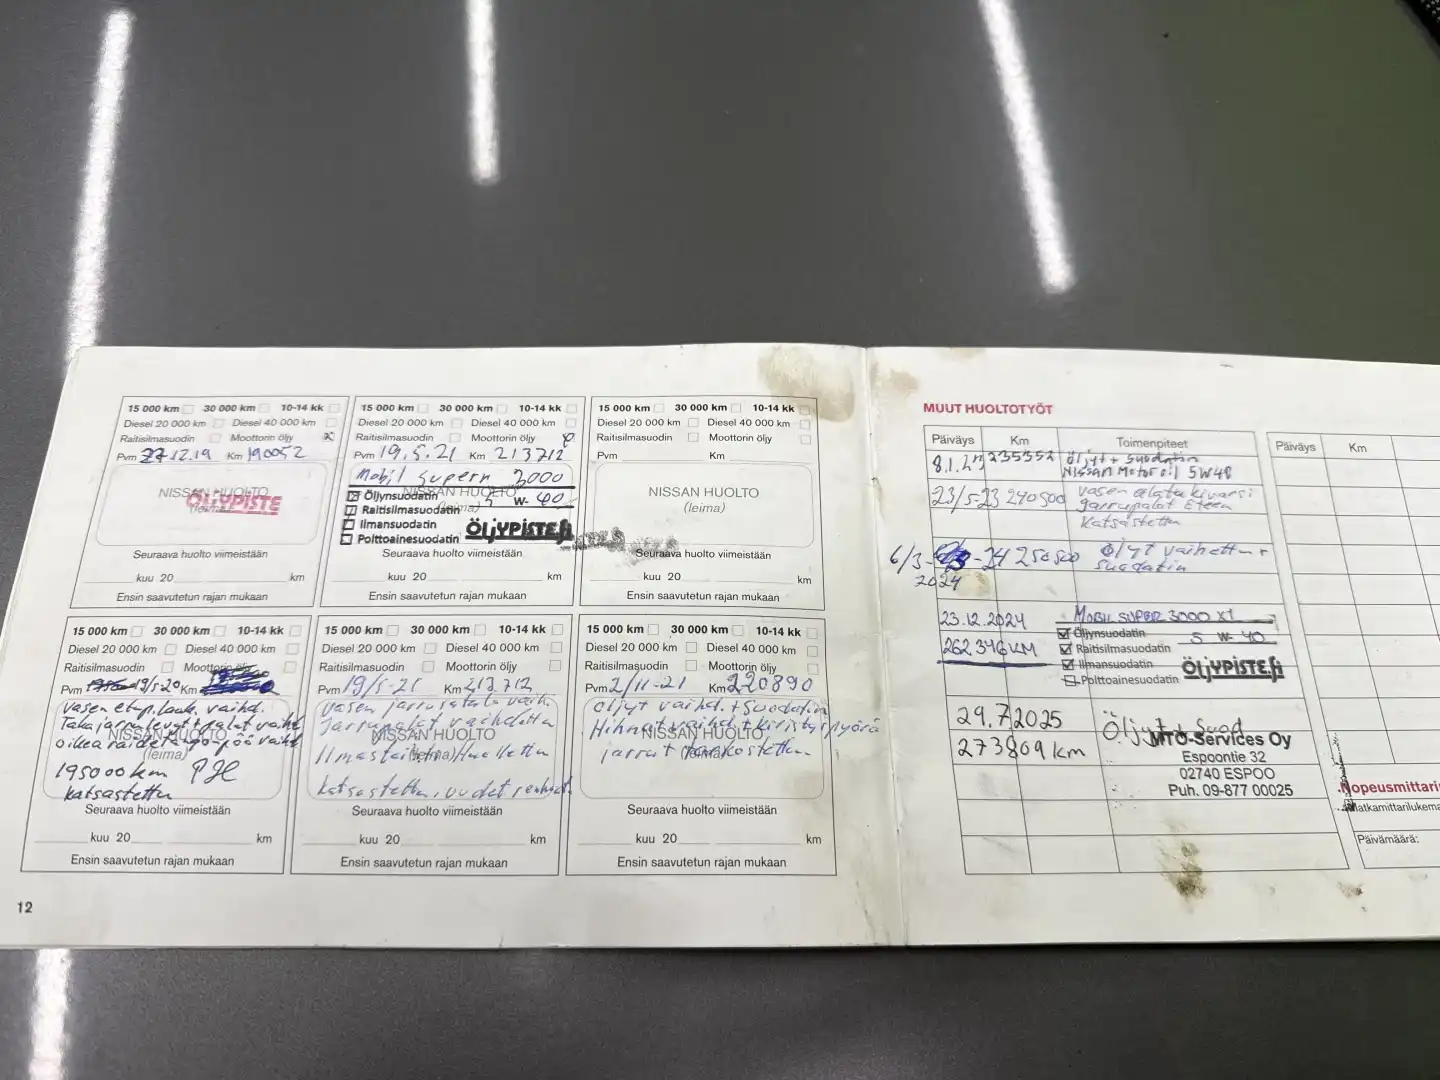 15 000 km 30 000 km 10-14 kk
Diesel 20 000 km Diesel 40 000 km
Raitisilmasuodin Moottorin öljy
Pvm 27.12.19 Km 190052
NISSAN HUOLTO
(leima)
ÖLJYPISTE
Seuraava huolto viimeistään
kuu 20 km
Ensin saavutetun rajan mukaan
15 000 km 30 000 km 10-14 kk
Diesel 20 000 km Diesel 40 000 km
Raitisilmasuodin Moottorin öljy
Pvm 19.5.21 Km 213712
Mobil Supern 3000
NISSAN HUOLTO
(leima)
Öljynsuodatin 5 W- 40
Raitisilmasuodatin
Ilmansuodatin
Polttoainesuodatin
ÖLJYPISTE.fi
Seuraava huolto viimeistään
kuu 20 km
Ensin saavutetun rajan mukaan
15 000 km 30 000 km 10-14 kk
Diesel 20 000 km Diesel 40 000 km
Raitisilmasuodin Moottorin öljy
Pvm Km
NISSAN HUOLTO
(leima)
Seuraava huolto viimeistään
kuu 20 km
Ensin saavutetun rajan mukaan
15 000 km 30 000 km 10-14 kk
Diesel 20 000 km Diesel 40 000 km
Raitisilmasuodin Moottorin öljy
Pvm 19/5-20 Km
vasen etup. lauk. vaihd.
Takajarrulevyt + palat vaihd
NISSAN HUOLTO
(leima)
oikea raidetanko-pää vaihd
195000km
katsastettu
Seuraava huolto viimeistään
kuu 20 km
Ensin saavutetun rajan mukaan
15 000 km 30 000 km 10-14 kk
Diesel 20 000 km Diesel 40 000 km
Raitisilmasuodin Moottorin öljy
Pvm 19/5-21 Km 213712
vasen jarrusatula vaih.
jarrupalat vaihdettu
NISSAN HUOLTO
(leima)
Ilmastointi huollettu
katsastettu, uudet renkaat
Seuraava huolto viimeistään
kuu 20 km
Ensin saavutetun rajan mukaan
15 000 km 30 000 km 10-14 kk
Diesel 20 000 km Diesel 40 000 km
Raitisilmasuodin Moottorin öljy
Pvm 2/11-21 Km 220890
Öljyt vaihd. + Suodatin
Hihnat vaihd + kiristyspyörä
NISSAN HUOLTO
(leima)
jarrut tarkostettu
Seuraava huolto viimeistään
kuu 20 km
Ensin saavutetun rajan mukaan
12
MUUT HUOLTOTYÖT
Päiväys Km Toimenpiteet
8.1.23 235352 Öljyt + Suodatin
NISSAN Motor oil 5W40
23/5-23 240500 vasen alatukivarsi
jarrupalat Eteen
Katsastettu
6/3- -24 250500 Öljyt vaihettu +
2024 Suodatin
23.12.2024 MOBIL SUPER 3000 X1
262.346KM Öljynsuodatin 5 W- 40
Raitisilmasuodatin
Ilmansuodatin
Polttoainesuodatin
ÖLJYPISTE.fi
29.7.2025 Öljyt + Suod
273809 km
MTO-Services Oy
Espoontie 32
02740 ESPOO
Puh. 09-877 00025
Päiväys Km
Nopeusmittari
Matkamittarilukema
Päivämäärä: